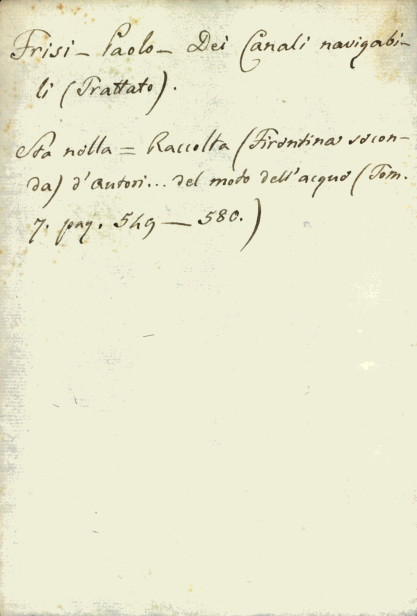 Frisi - Paolo - Dei Canali navigabi-
li (Trattato).
Sta nella = Raccolta (Fiorentina secon-
da) d'autori... del moto dell'acque (Tom.
7. pag. 549 — 580.)